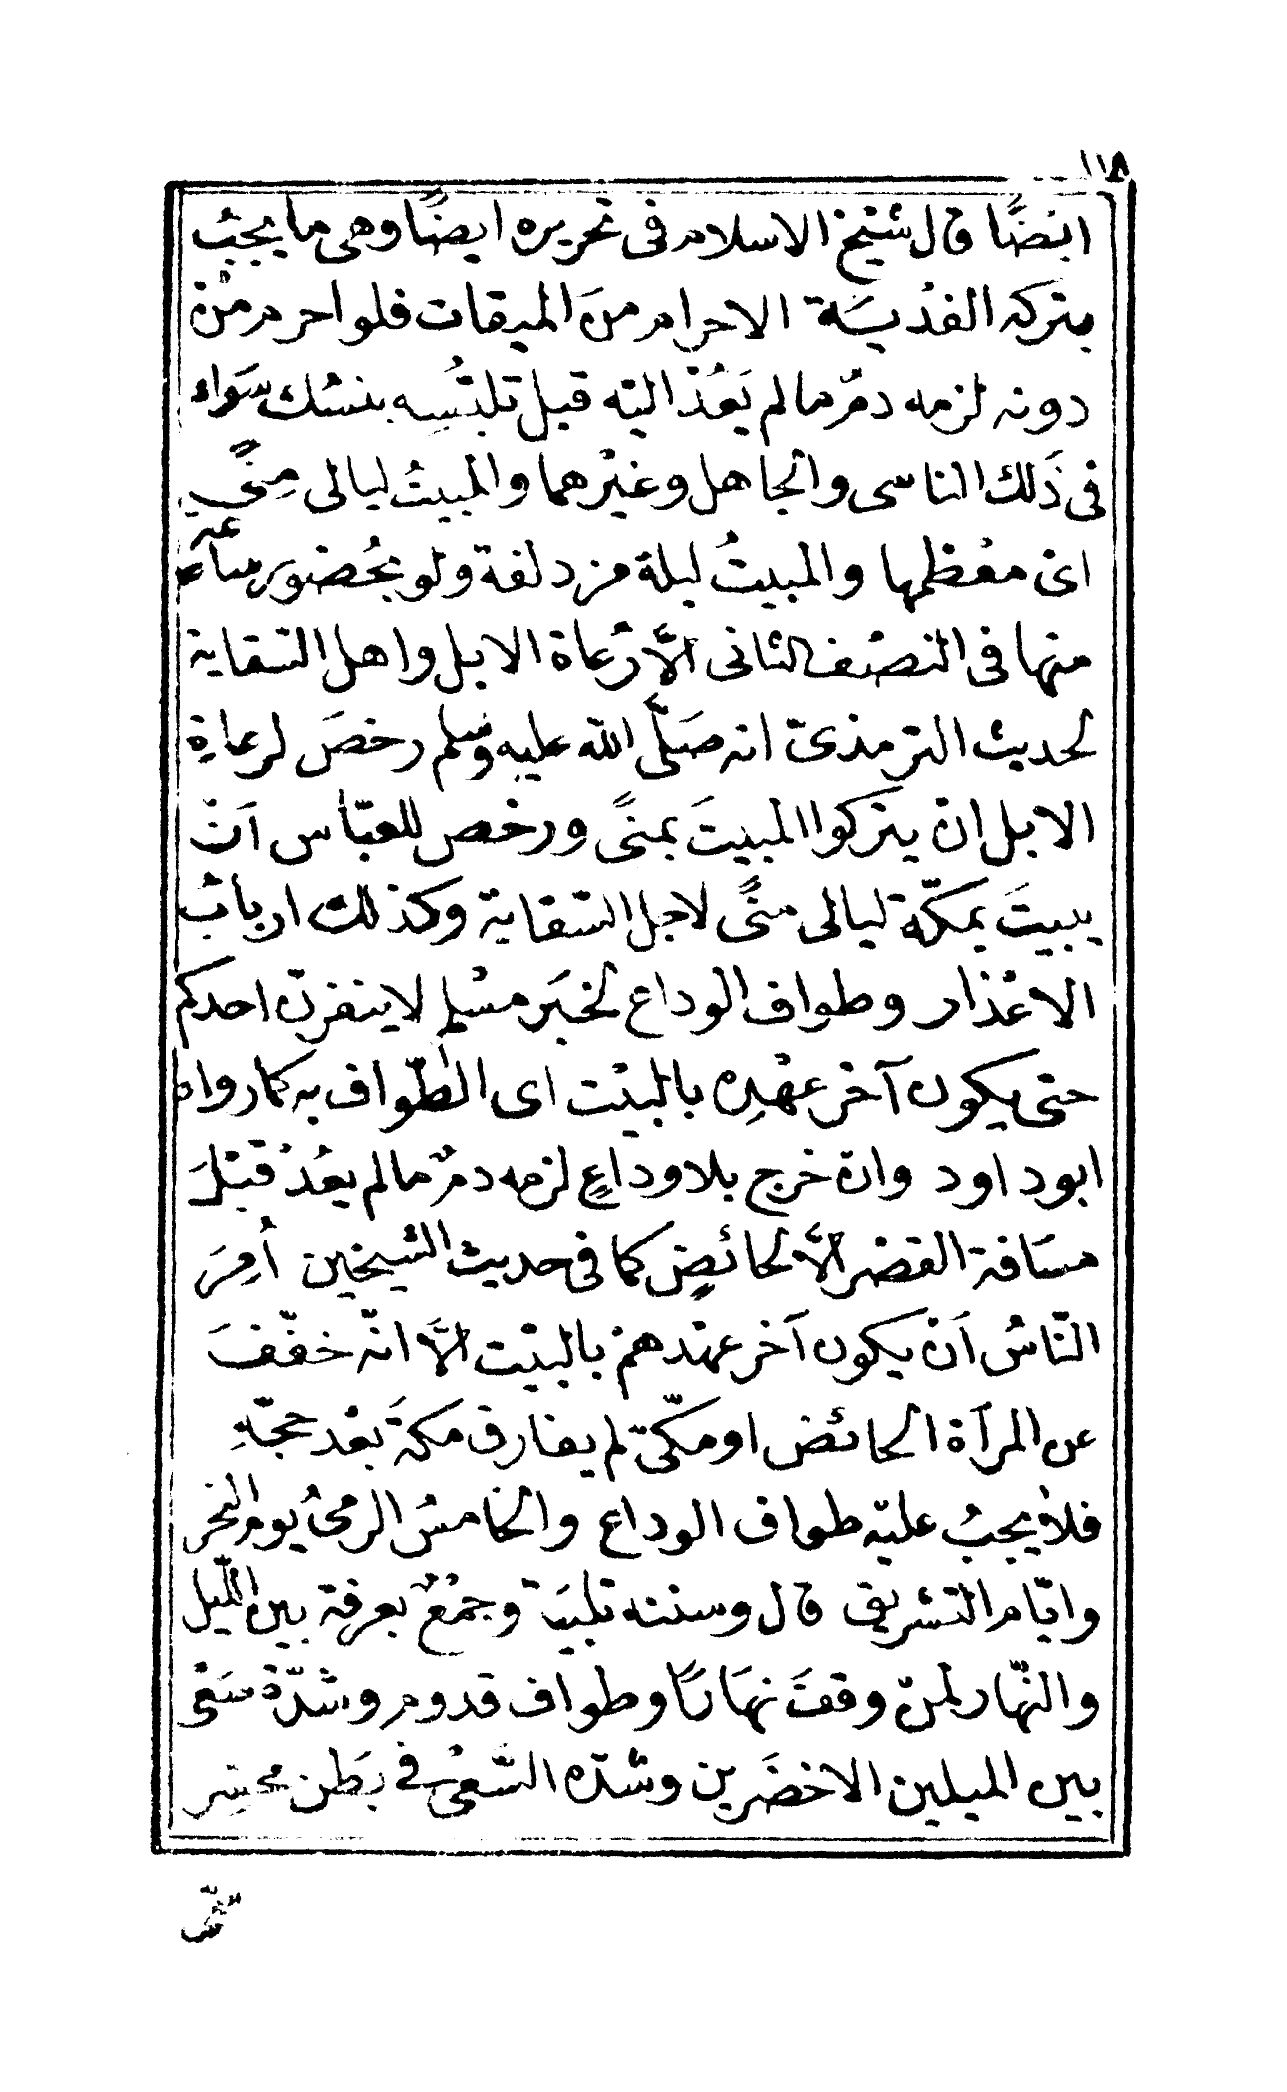 ١١٨
ايضًا قال شيخ الاسلام فى تحريره ايضًا وهى ما يجبُ
بتركه الفدْيَة الاحرام منَ الميقات فلو احرم منْ
دونه لزمه دمٌ ما لم يَعُدْ اليْه قبل تلبّسِه بنسُك سَواء
فى ذَلك الناسى والجاهل وغيْرهما والمبيتُ ليالى مِنًى
اىْ معْظمها والمبيتُ ليلة مزدلفة ولو بحُضورِ ساعة
منها فى النصْف الثانى الاَّ رُعاة الابل واهل السّقاية
لحديث الترمذىّ انه صَلّى الله عليه وسلم رخصَ لرعاةِ
الابل انْ يتركوا المبيتَ بمنًى ورخص للعبّاس اَنْ
يبيتَ بمكّة ليالى منًى لاجل السّقاية وكذلك اربابُ
الاعْذار وطواف الوداع لخبَر مسْلم لا ينفرنّ احدكم
حتى يكون آخر عهْدِه بالبيْت اى الطّواف به كما رواه
ابو داود وانْ خرج بلا وداعٍ لزمه دمٌ ما لم يعُدْ قبْلَ
مسَافة القصْر الاَّ لحائضٍ كما فى حديث الشيخين اُمِرَ
النّاسُ اَنْ يكون آخر عهْدهمْ بالبيْت الاَّ انّه خفّفَ
عن المرآة الحائض او مكّىّ لم يفارق مكةَ بعْد حجّهِ
فلا يجبُ عليْه طواف الوداع والخامسُ الرمىُ يوم النحر
وايّام التشريق قال وسننه تلبيَة وجمْعٌ بعرفة بين الليل
والنّهار لمنْ وقفَ نهَارًا وطواف قدوم وشدّة سَعْى
بين الميلين الاخضَرين وشدّه السَّعْى فى بَطْن محسِر